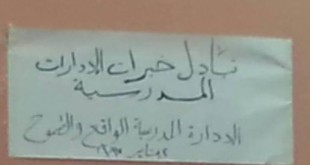 تبادل خبرات الادارات
المدرسية
الادارة المدرسية الواقع والطموح